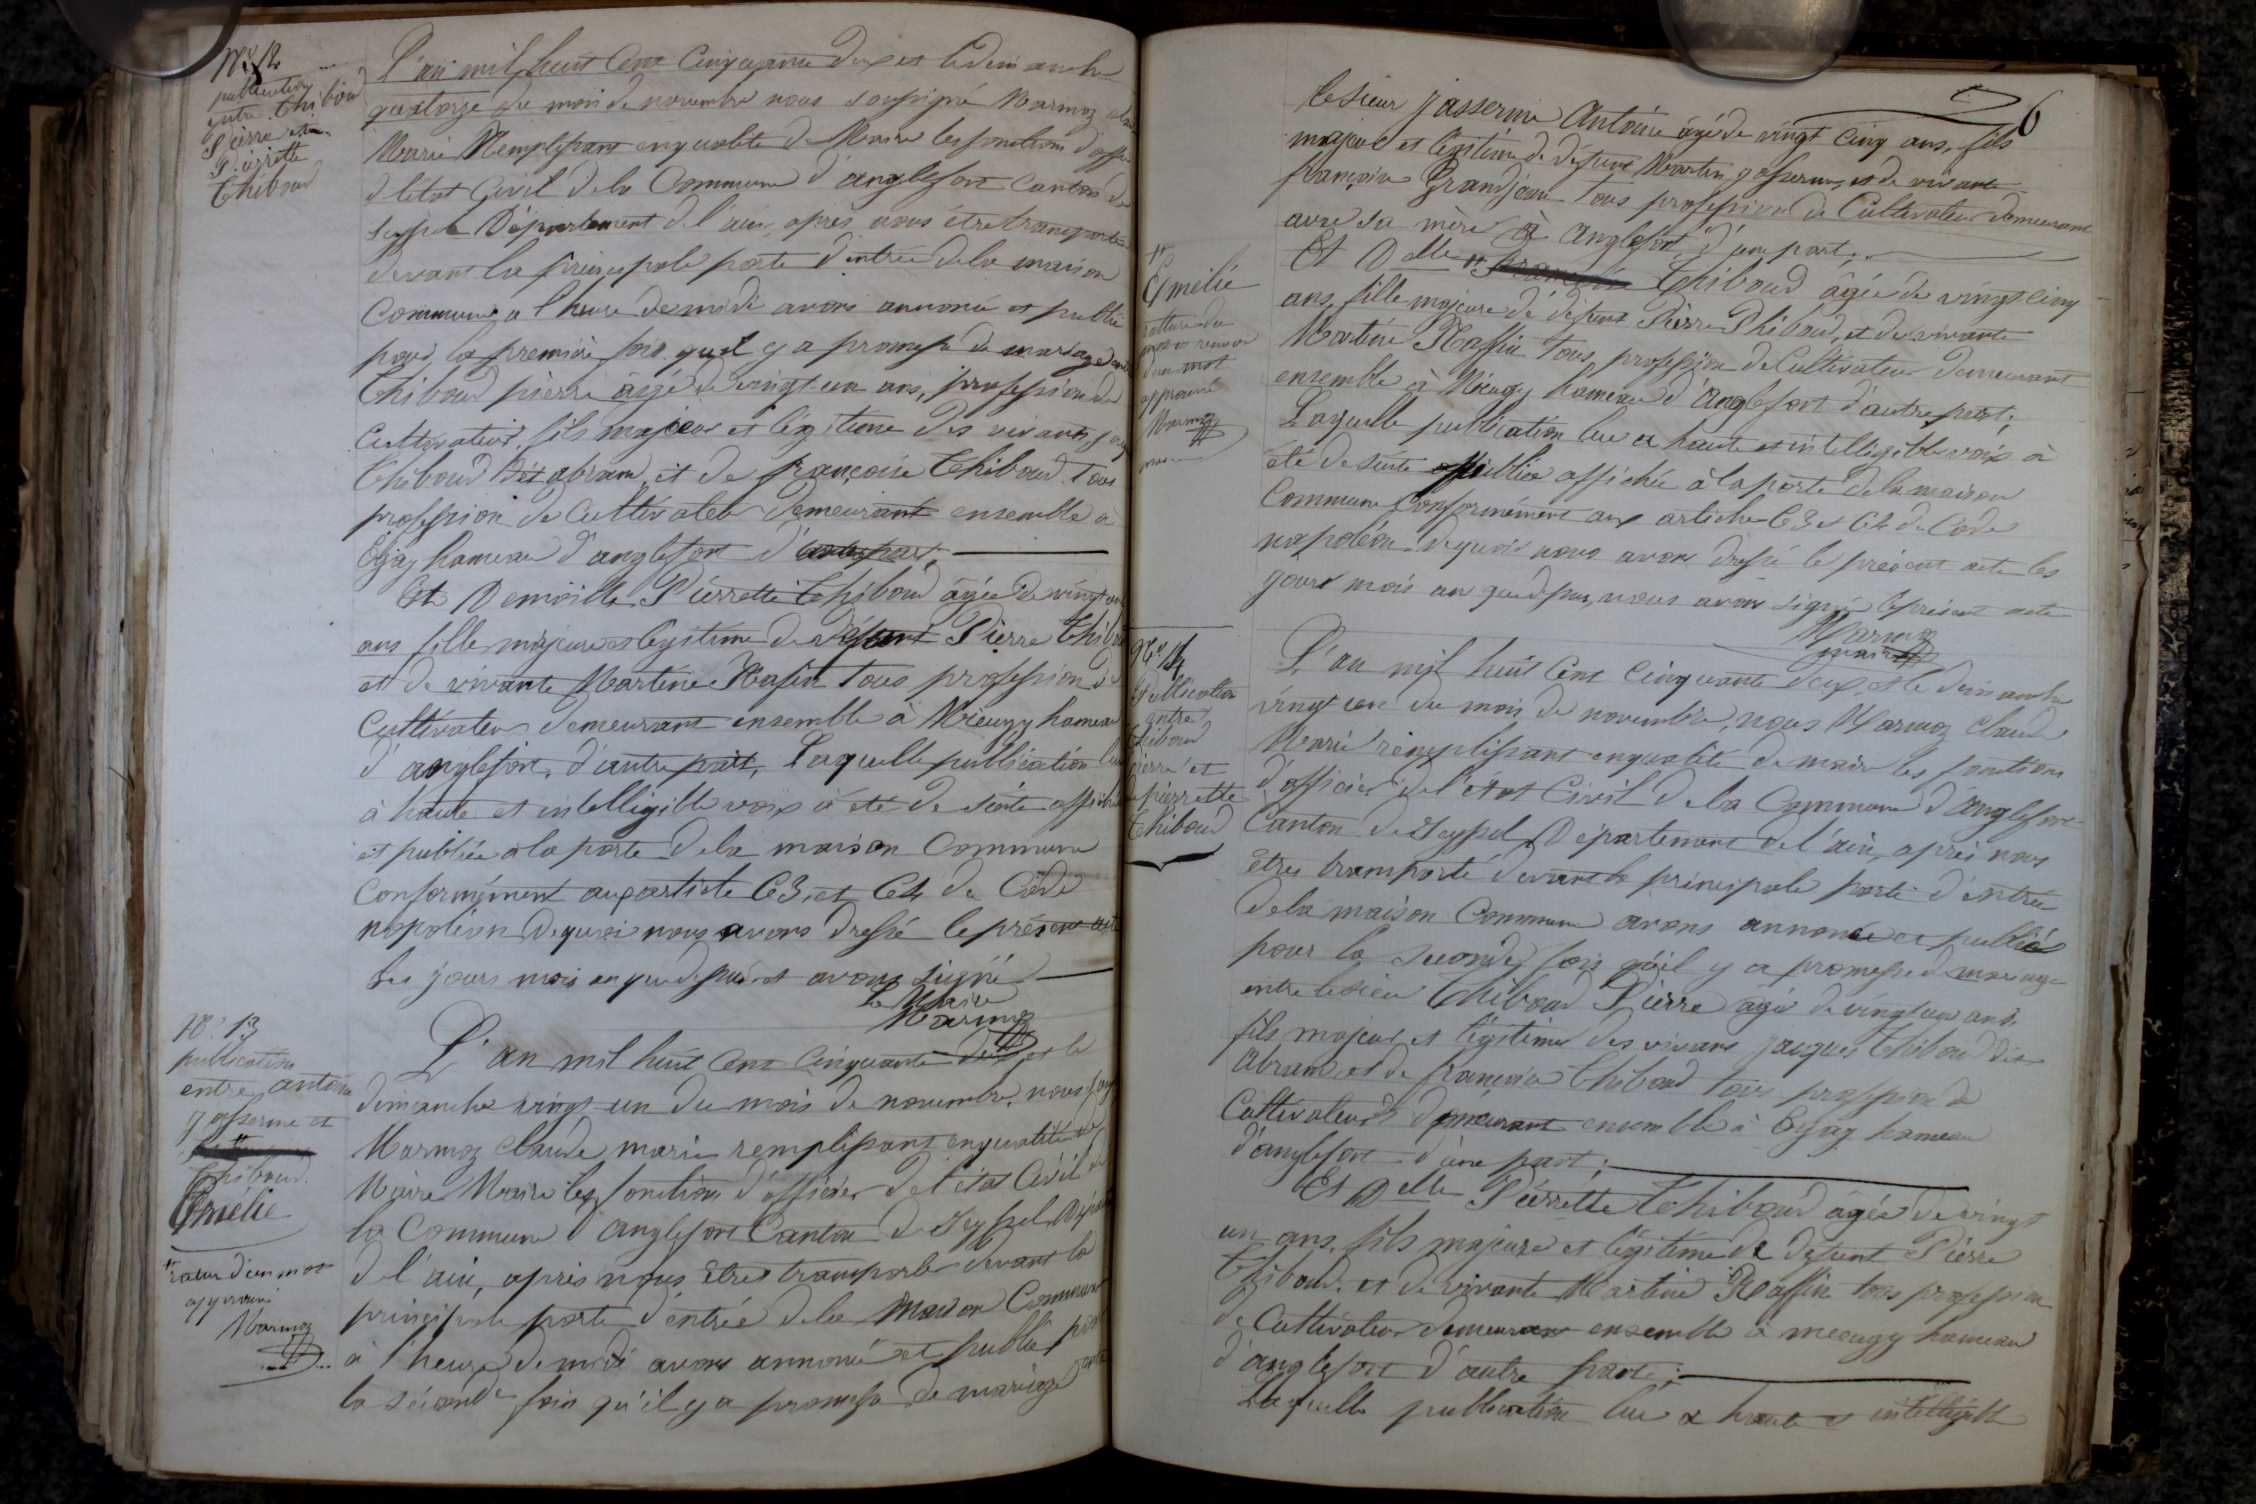 N° 12
publication
entre Thiboud
Pierre et
Pierrette
Thiboud
L'an mil huit cent cinquante deux et le dimanche
quatorze du mois de novembre nous soussigné Marmoz
Marie Remplissant en qualité de Maire les fonctions d'offi
de l'état Civil de la Commune d'anglefort Canton de
Seyssel Département de l'ain, après nous être transporté
devant la principale porte d'entrée de la maison
Commune a l'heure de midi avons annoncé et publié
pour la première fois qu'il y a promesse de mariage entre
Thiboud pierre âgé de vingt un ans, profession de
Cultivateur, fils majeur et légitime des vivants jacq
Thiboud dit abram, et de françoise Thiboud. Tous
profession de Cultivateur demeurant ensemble à
hameau d'anglefort d'
Et Demoiselle Pierrette Thiboud âgée de vingt un
ans fille majeure et légitime de défunt Pierre Thiboud
et de vivante Martine Raffin tous profession de
Cultivateur demeurant ensemble à Mieugy hameau
d'anglefort, d'autre part, Laquelle publication lue
à haute et intelligible voix à été de suite affichée
et publiée a la porte de la maison Commune
Conformément aux article 63, et 64 du Code
napoléon De quoi nous avons dressé le présent acte
les jours mois an que dessus et avons signé
Le Maire
Marmoz
N° 13
publication
entre antoine
jasserme et
Thiboud.
Emélie
rature d'un mot
approuvé
Marmoz
L'an mil huit cent cinquante deux et le
dimanche vingt un du mois de novembre. nous
Marmoz claude marie remplissant en qualité de
Maire Maire les fonctions d'officier de l'état Civil de
la Commune d'anglefort Canton de Seyssel Départ
de l'ain, après nous être transporté devant la
principale porte d'entrée de la maison Commune
à l'heure de midi avons annoncé et publié pour
la seconde fois qu'il y a promesse de mariage entre
6
le sieur jasserme Antoine âgé de vingt cinq ans, fils
majeur et légitime de défunt Martin jasserme, et de vivante
françoise Grandjean Tous profession de Cultivateur demeurant
avec sa mère à Anglefort d'une part.
Et Delle Thiboud âgée de vingt cinq
ans, fille majeure de défunt Pierre Thiboud, et de vivante
Martine Raffin Tous, profession de Cultivateur demeurant
ensemble à Mieugy hameau d'Anglefort d'autre part;
Laquelle publication lue a haute et intelligible voix à
été de suite publiée affichée à la porte de la maison
Commune Conformément aux article 63 et 64 du Code
napoléon. De quoi nous avons dressé le présent acte les
jours mois an que dessus, nous avons signé le présent acte
Marmoz
maire
Emélie
rature du
renvoi
d'un mot
approuvé
Marmoz
maire
N° 14
Publication
entre
Thiboud
pierre et
pierrette
Thiboud
L'an mil huit cent cinquante deux, et le dimanche
vingt un du mois de novembre, nous Marmoz Claude
Marie remplissant en qualité de maire les fonctions
d'officier de l'état Civil de la Commune d'Anglefort
Canton de Seyssel Département de l'ain, après nous
être transporté devant la principale porte d'entrée
de la maison Commune avons annoncé et publié
pour la seconde fois qu'il y a promesse de mariage
entre le sieur Thiboud Pierre âgé de vingt un ans,
fils majeur et légitime des vivans jacques Thiboud dit
Abram et de françoise Thiboud tous profession de
Cultivateurs demeurant ensemble à hameau
d'anglefort d'une part;
Et Delle Pierrette Thiboud âgée de vingt
un ans, fils majeure et légitime de défunt Pierre
Thiboud. et de vivante Martine Raffin tous profession
de Cultivateur demeurant ensemble à mieugy hameau
d'anglefort d'autre part;
Laquelle publication lue a haute et intelligible